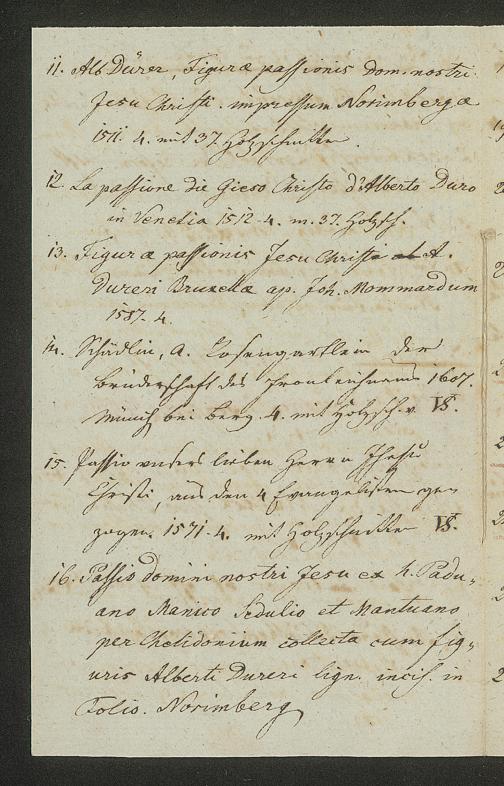 11. Alb Dürer, Figuræ passionis dom. nostri
Jesu Christi. impressum Norimbergæ
1511. 4. mit 37. Holzschnitten.
12. La passione die Gieso Christo d'Alberto Duro
in Venetia 1512. 4. m. 37. Holzsch.
13. Figuræ passionis Jesu Christi ab A.
Dureri Bruxellæ ap. Joh. Mommardum
1587. 4.
14. Schädlin, A. Rosengärtlein der
Bruderschaft des Fronleichnams 1607.
Münch bei Berg. 4. mit Holzsch. v. VS.
15. Passio unsers lieben Herrn Jhesu
Christi, aus den 4 Evangelisten gen
zogen. 1571. 4. mit Holzschnitten VS.
16. Passio domini nostri Jesu ex h. Padu„
ano Manico Sedulio et Mantuano
per Chelidonium collecta cum fig„
uris Alberti Dureri lign. incis. in
Folio. Norimberg